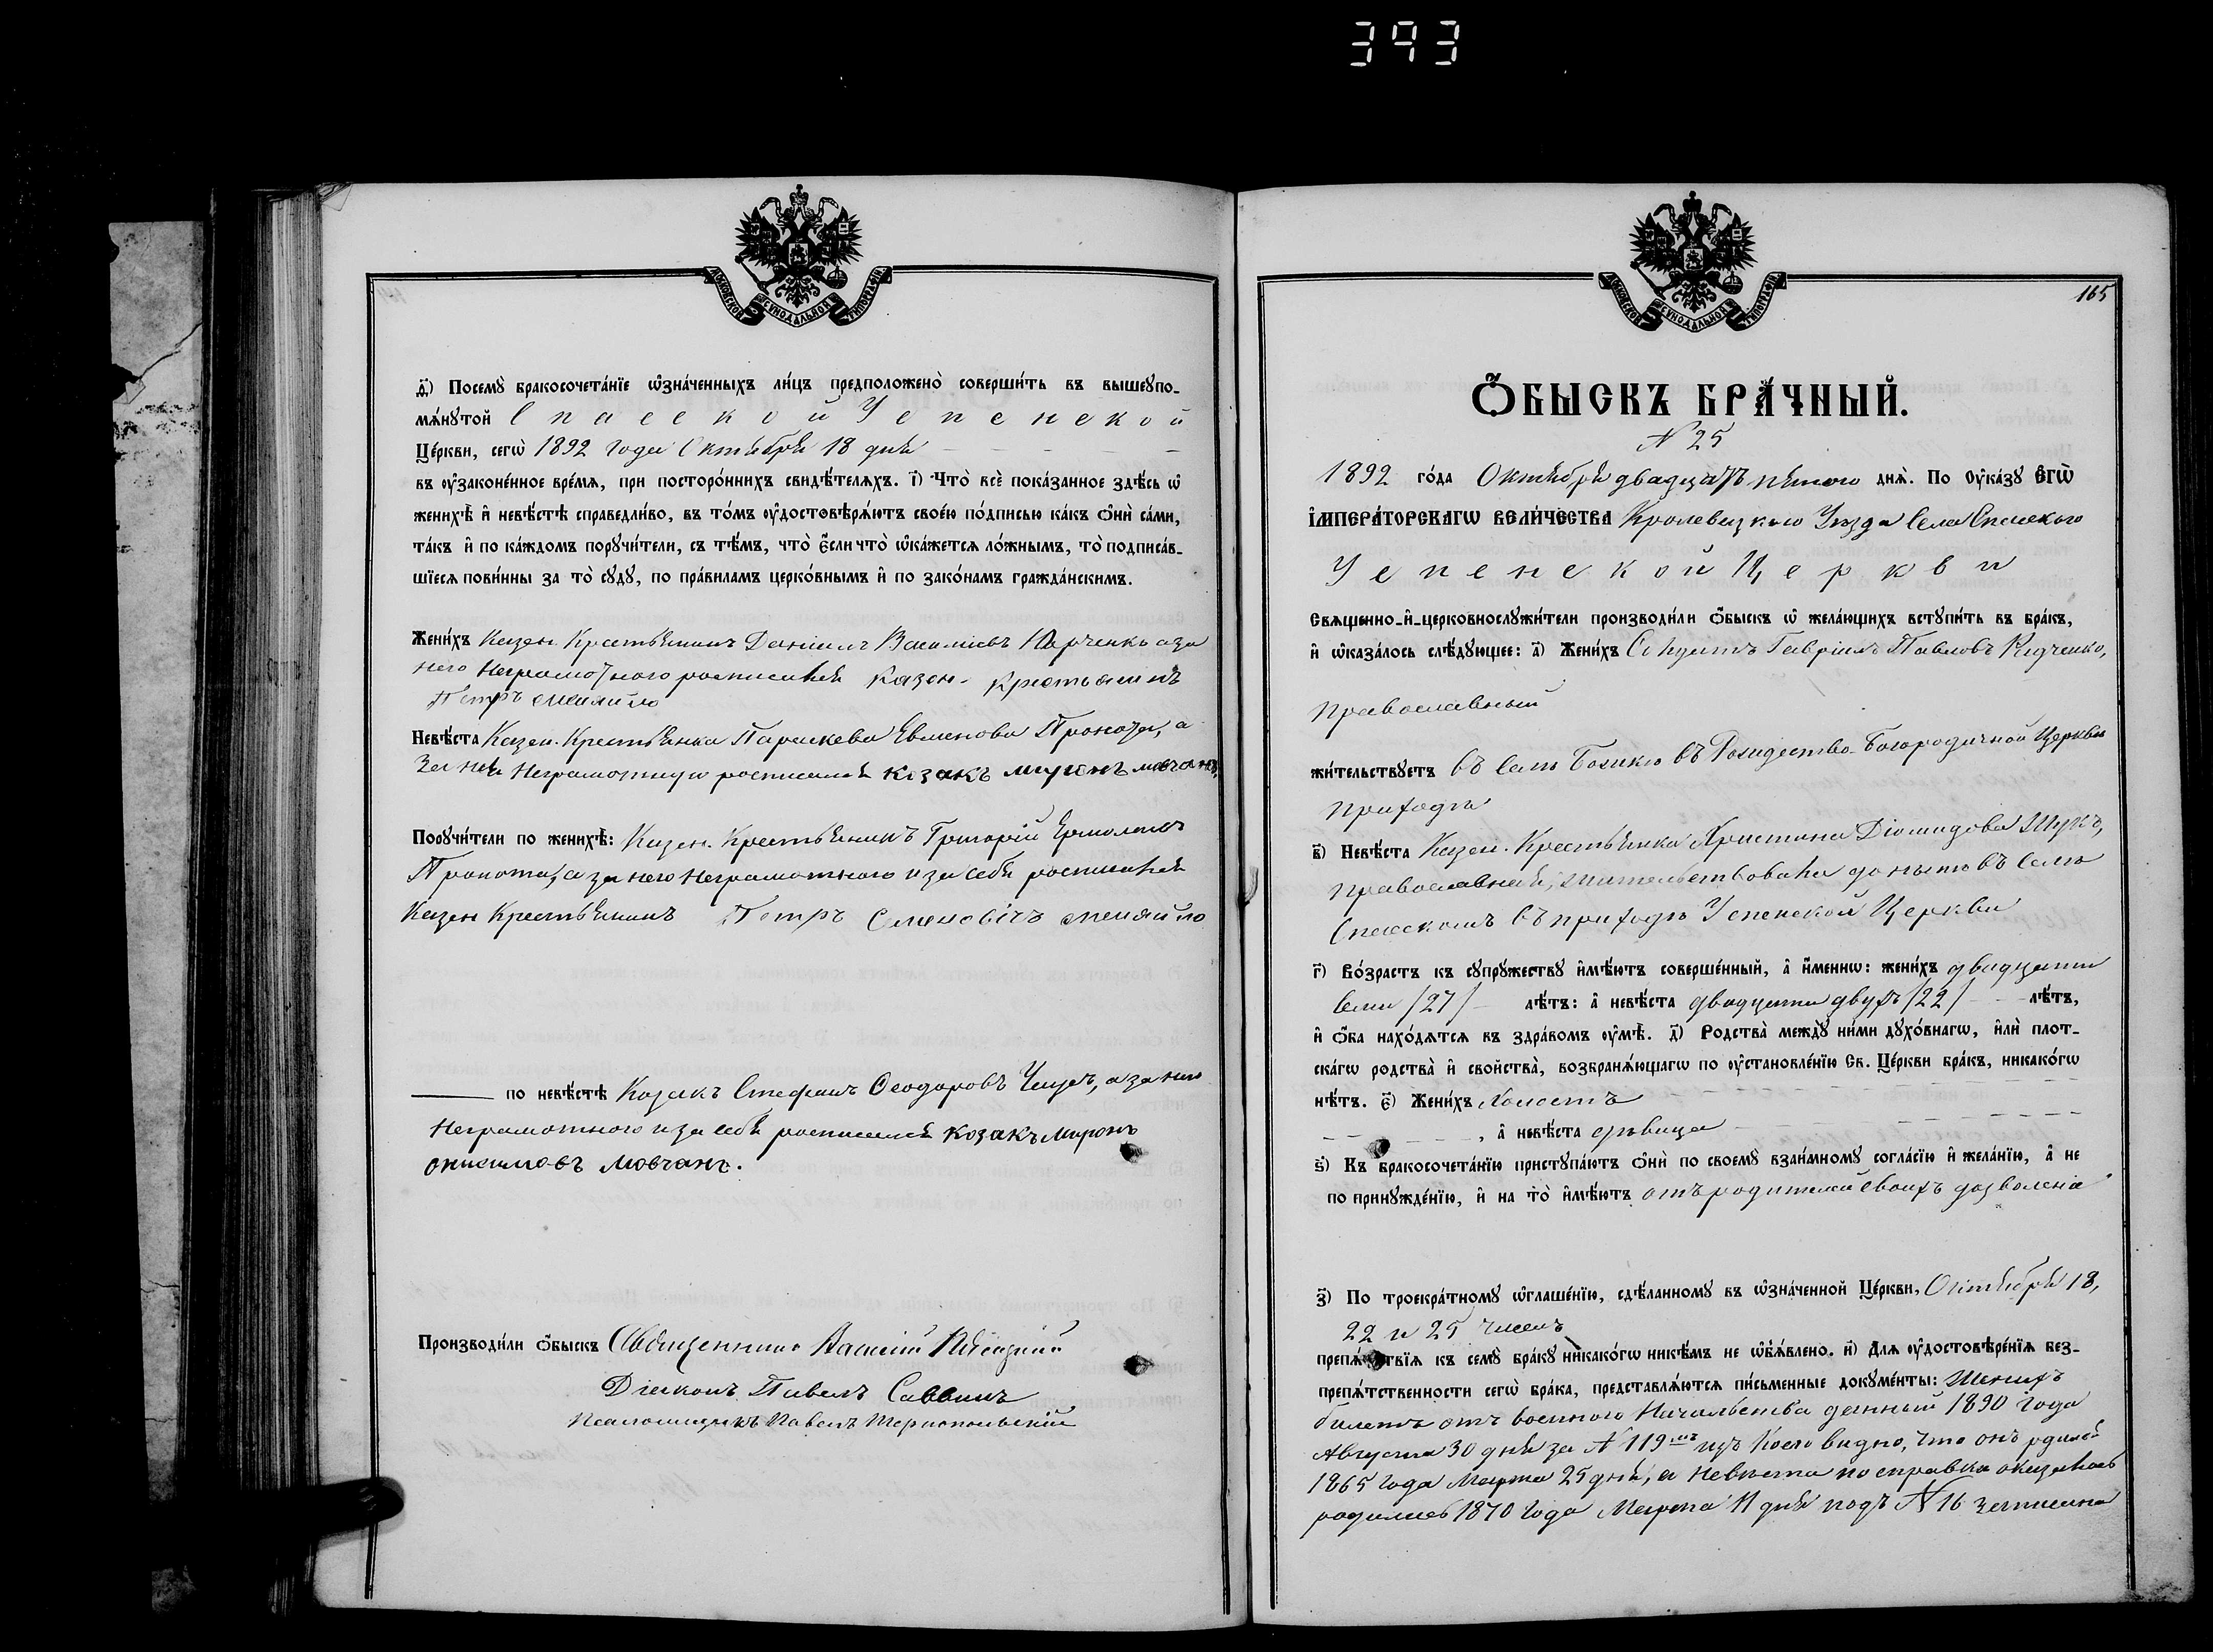 393
МОСКОВСКОЙ СѴНОДАЛЬНОЙ ТИПОГРАФІИ
д҃і) Посемꙋ̀ бракосочета́нїе ѡ҆зна́ченныхъ ли́цъ предположено̀ соверши́ть въ вышеꙋпо-
мѧ́нꙋтой Спасской Успенской
Це́ркви, сегѡ̀ 1892 года Октября 18 дня
въ ᲂу҆законе́нное вре́мѧ, при посторо́ннихъ свидѣ́телѧхъ. і҃) Что̀ всѐ пока́занное здѣ́сь ѡ҆
женихѣ̀ и҆ невѣ́стѣ справедли́во, въ то́мъ ᲂу҆достовѣрѧ́ютъ свое́ю по́дписью ка́къ ѻ҆нѝ са́ми,
та́къ и҆ по ка́ждомъ порꙋчи́тели, съ тѣ́мъ, что̀ є҆́сли что̀ ѡ҆ка́жетсѧ ло́жнымъ, то̀ подписа́в-
шїесѧ пови́нны за то̀ сꙋдꙋ̀, по пра́виламъ церко́внымъ и҆ по зако́намъ гражда́нскимъ.
Жени́хъ Казен. Крестьянинъ Даніилъ Василіевъ Юрченко а за
него Неграмотного росписался Казен. крестьянинъ
Петръ Меняйло
Невѣ́ста Казен. Крестьянка Параскева Евменова Проноза, а
за нея Неграмотную росписался козакъ Миронъ мовчанъ,
Порꙋчи́тели по женихѣ̀: Казен. Крестьянинъ Григорій Ермолаевъ
а за него Неграмотного и за себя росписался
Казен Крестьянинъ Петръ Семеновичъ меняйло
по невѣ́стѣ Козакъ Стефанъ Ѳеодоровъ а за него
Неграмотного и за себя росписался козакъ Миронъ
онисимовъ мовчанъ.
Производи́ли ѻ҆́быскъ Священникъ
Діаконъ Павелъ Саввинъ
Псаломщикъ Павелъ
МОСКОВСКОЙ СѴНОДАЛЬНОЙ ТИПОГРАФІИ
165
Ѻ҆БЫСКЪ БРА́ЧНЫЙ.
N 25
1892 го́да Октября двадцать пятого днѧ̀. По Оу҆ка́зꙋ Є҆гѡ̀
І҆мпера́торскагѡ Вели́чества Кролевецкого Уѣзда Села Спасского
Успенской Церкви
Свѧще́нно-и҆-церковнослꙋжи́тели производи́ли ѻ҆́быскъ ѡ҆ жела́ющихъ встꙋпи́ть въ бра́къ,
и҆ ѡ҆каза́лось слѣ́дꙋющее: а҃) Жени́хъ Солдатъ Гавріилъ Павловъ Радченко,
православный
жи́тельствꙋетъ въ селѣ въ Рождество-Богородичной Церкви
приходѣ
в҃) Невѣ́ста Казен. Крестьянка Христина Діомидова Шукъ,
православная, жительствовала до нынѣ въ селѣ
Спасскомъ въ приходѣ Успенской Церкви
г҃) Во́зрастъ къ сꙋпрꙋ́жествꙋ и҆мѣ́ютъ соверше́нный, а҆ и҆́меннѡ: жени́хъ двадцати
семи /27/ лѣ́тъ: а҆ невѣ́ста двадцати двухъ /22/ лѣ́тъ,
и҆ ѻ҆́ба нахо́дѧтсѧ въ здра́вомъ ᲂу҆мѣ̀. д҃) Родства̀ междꙋ̀ ни́ми дꙋхо́внагѡ, и҆лѝ плот-
ска́гѡ родства̀ и҆ свойства̀, возбранѧ́ющагѡ по ᲂу҆становле́нїю Св. Це́ркви бра́къ, никако́гѡ
нѣ́тъ. є҃) Жени́хъ Холостъ
, а҆ невѣ́ста дѣвица
ѕ҃) Къ бракосочета́нїю пристꙋпа́ютъ ѻ҆нѝ по своемꙋ̀ взаи́мномꙋ согла́сїю и҆ жела́нїю, а҆ не
по принꙋжде́нїю, и҆ на то̀ и҆мѣ́ютъ отъ родителей своихъ дозволеніе
з҃) По троекра́тномꙋ ѡ҆глаше́нїю, сдѣ́ланномꙋ въ ѡ҆зна́ченной Це́ркви, Октября 18,
22 и 25 чиселъ
препѧ́тствїѧ къ семꙋ̀ бра́кꙋ никако́гѡ никѣ́мъ не ѡ҆б̾ѧ́влено. и҃) Длѧ ᲂу҆достовѣре́нїѧ без-
препѧ́тственности сегѡ̀ бра́ка, представлѧ́ютсѧ пи́сьменные докꙋме́нты: Женихъ
билетъ отъ военного Начальства данный 1890 года
Августа 30 дня за N 119мъ изъ коего видно, что онъ родился
1865 года Марта 25 дня, а невѣста по справкѣ оказалась
родилась 1870 года Марта 11 дня подъ N 16 записана